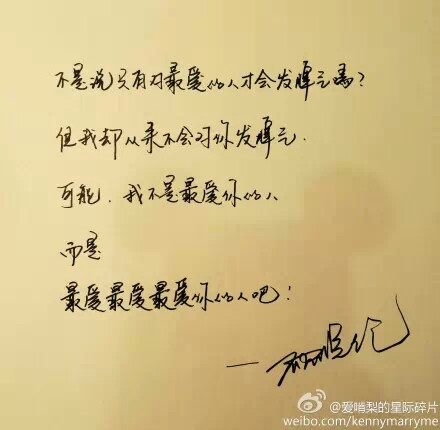 不是说只有对最爱的人才会发脾气吗?
但我却从来不会对你发脾气.
可能.我不是最爱你的人
而是
最爱最爱最爱你的人吧!
@爱啃梨的星际碎片
weibo.com/kennymarryme